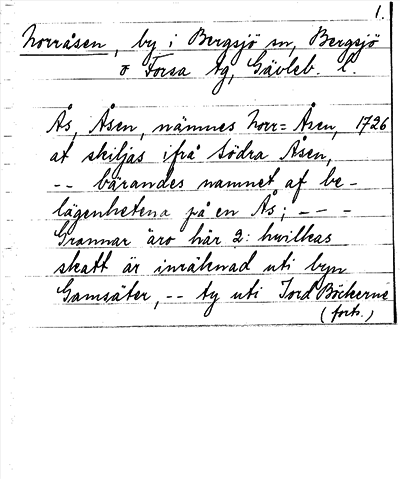 1.
Norråsen, by i Bergsjö sn, Bergsjö
o Forsa tg, Gävleb. l.
Ås, Åsen, nämnes Norr=Åsen, 1726
at skiljas ifrå Södra Åsen,
-- bärandes namnet af be-
lägenhetena på en Ås; -- -
Grannar äro här 2: hwilkas
skatt är inräknad uti byn
Gamsäter, -- ty uti Jord Böckerne
(forts.)